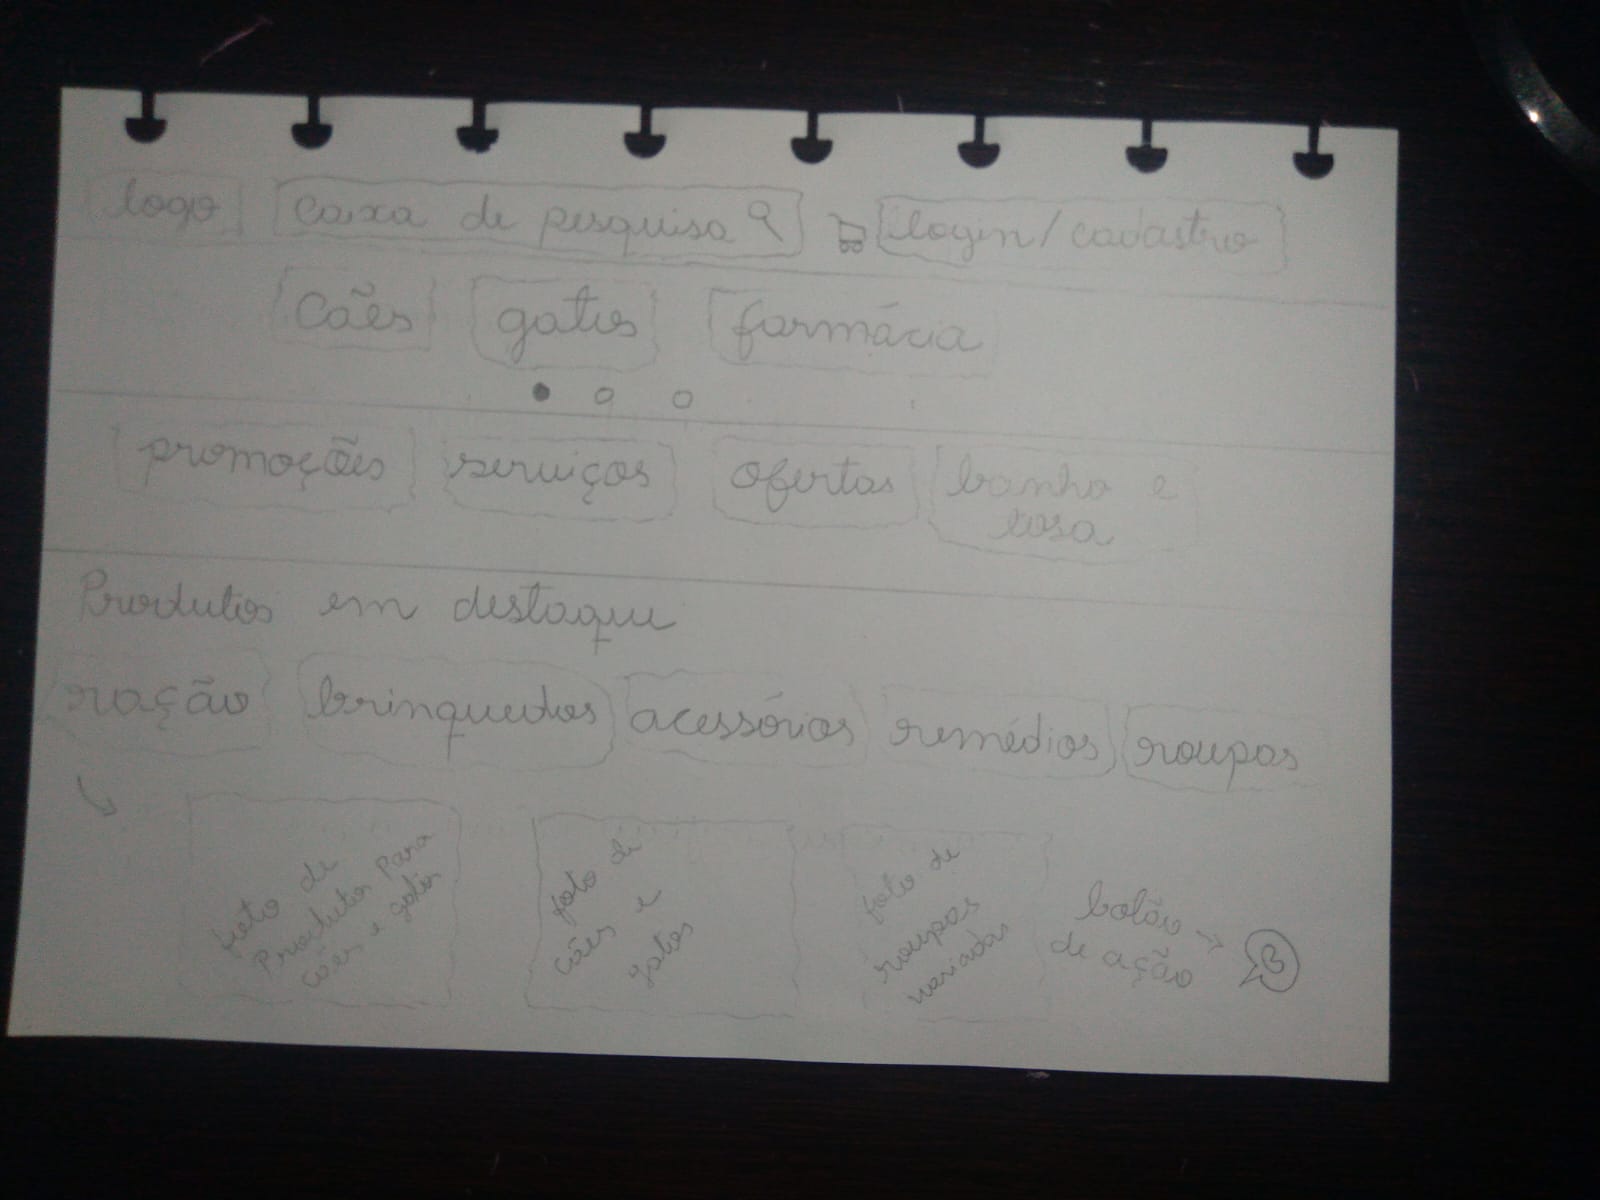 logo caixa de pesquisa login/cadastro
Cães gatos farmácia
promoções serviços ofertas banho e tosa
Produtos em destaque
ração brinquedos acessórios remédios roupas
foto de Produtos Para cães e gatos
foto de cães e gatos
foto de roupas variadas
botão de ação
B